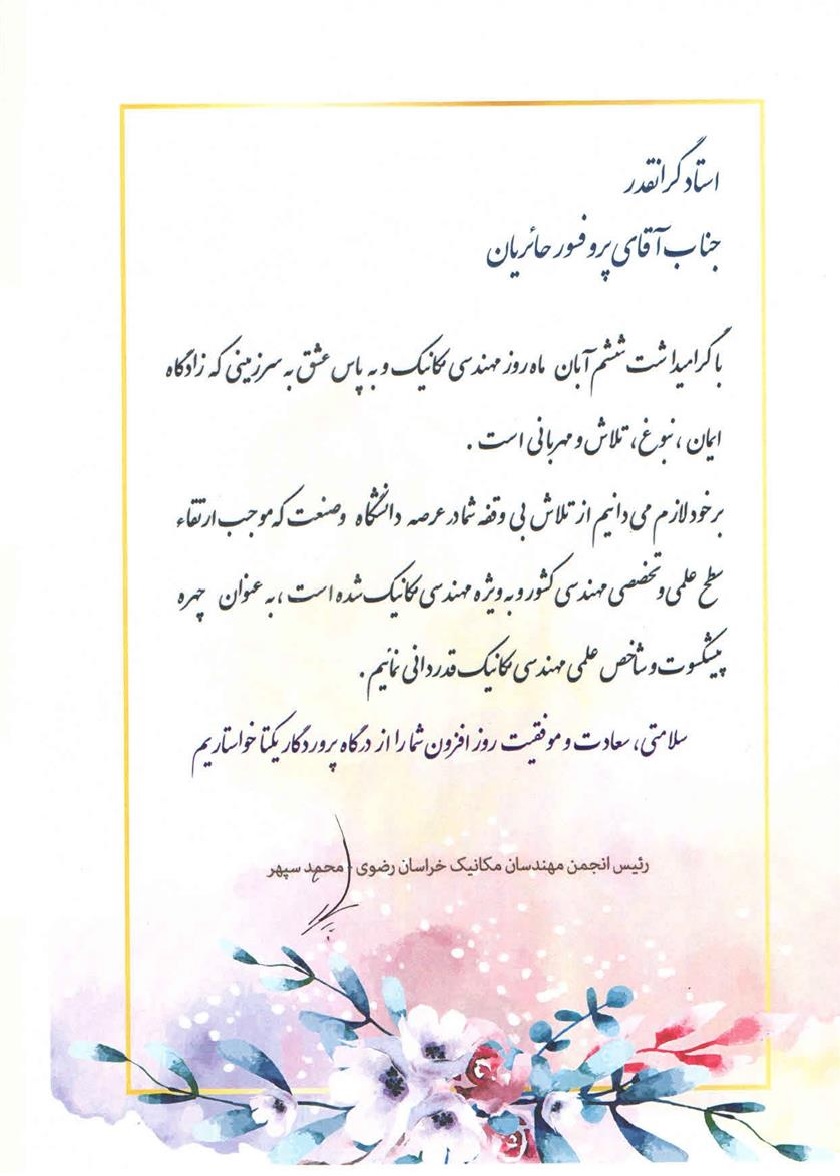 استاد گرانقدر
جناب آقای پروفسور حائریان
با گرامیداشت ششم آبان ماه روز مهندسی مکانیک و به پاس عشق به سرزمینی که زادگاه
ایمان ، نبوغ ، تلاش و مهربانی است .
برخود لازم می دانیم از تلاش بی وقفه شما در عرصه دانشگاه وصنعت که موجب ارتقاء
سطح علمی و تخصصی مهندسی کشور و به ویژه مهندسی مکانیک شده است ، به عنوان چهره
پیشکسوت و شاخص علمی مهندسی مکانیک قدردانی نمائیم .
سلامتی ، سعادت و موفقیت روز افزون شما را از درگاه پروردگار یکتا خواستاریم
رئیس انجمن مهندسان مکانیک خراسان رضوی - محمد سپهر